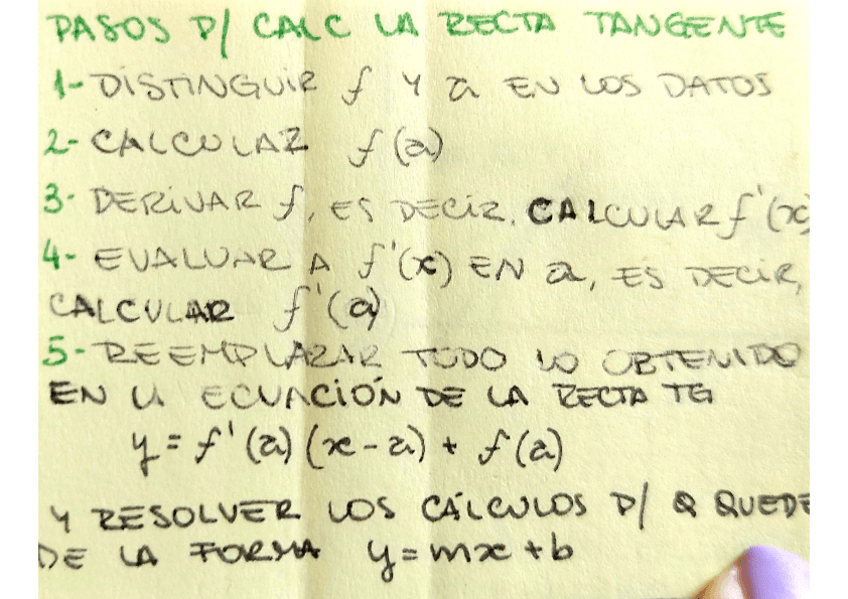 PASOS P/ CALC LA RECTA TANGENTE
1- DISTINGUIR f Y a EN LOS DATOS
2- CALCULAR f(a)
3- DERIVAR f, ES DECIR, CALCULAR f'(x)
4- EVALUAR A f'(x) EN a, ES DECIR,
CALCULAR f'(a)
5- REEMPLAZAR TODO LO OBTENIDO
EN LA ECUACIÓN DE LA RECTA TG
y = f'(a) (x - a) + f(a)
Y RESOLVER LOS CÁLCULOS P/ Q QUEDE
DE LA FORMA y = mx + b